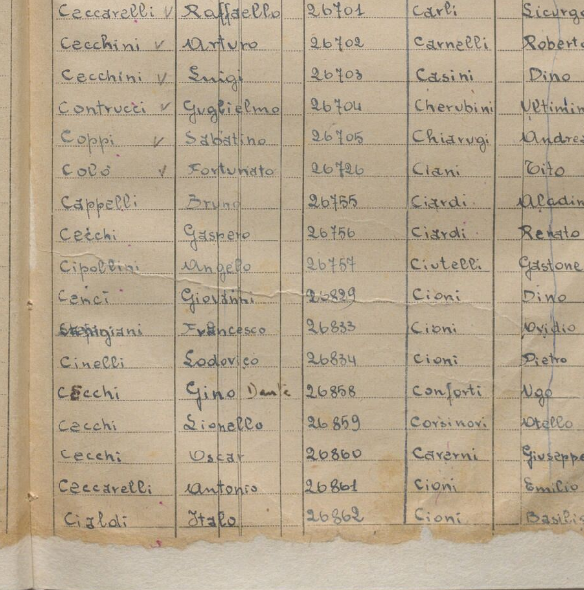 Ceccarelli v Raffaello 26701 Carli Licurgo
Cecchini v Arturo 26702 Carnelli Roberto
Cecchini v Luigi 26703 Casini Dino
Contrucci v Guglielmo 26704 Cherubini Ultimin
Coppi v Sabatino 26705 Chiarugi Andrea
Colò v Fortunato 26726 Ciani Tito
Cappelli Bruno 26755 Ciardi Aladin
Cecchi Gaspero 26756 Ciardi Renato
Cipollini Angelo 26757 Ciutelli Gastone
Cenci Giovanni 26829 Cioni Dino
Francesco 26833 Cioni Ovidio
Cinelli Lodovico 26834 Cioni Pietro
Cecchi Gino Dante 26858 Conforti Ugo
Cecchi Lionello 26859 Corsinovi Otello
Cecchi Oscar 26860 Caverni Giuseppe
Ceccarelli Antonio 26861 Cioni Emilio
Cialdi Italo 26862 Cioni Basilio